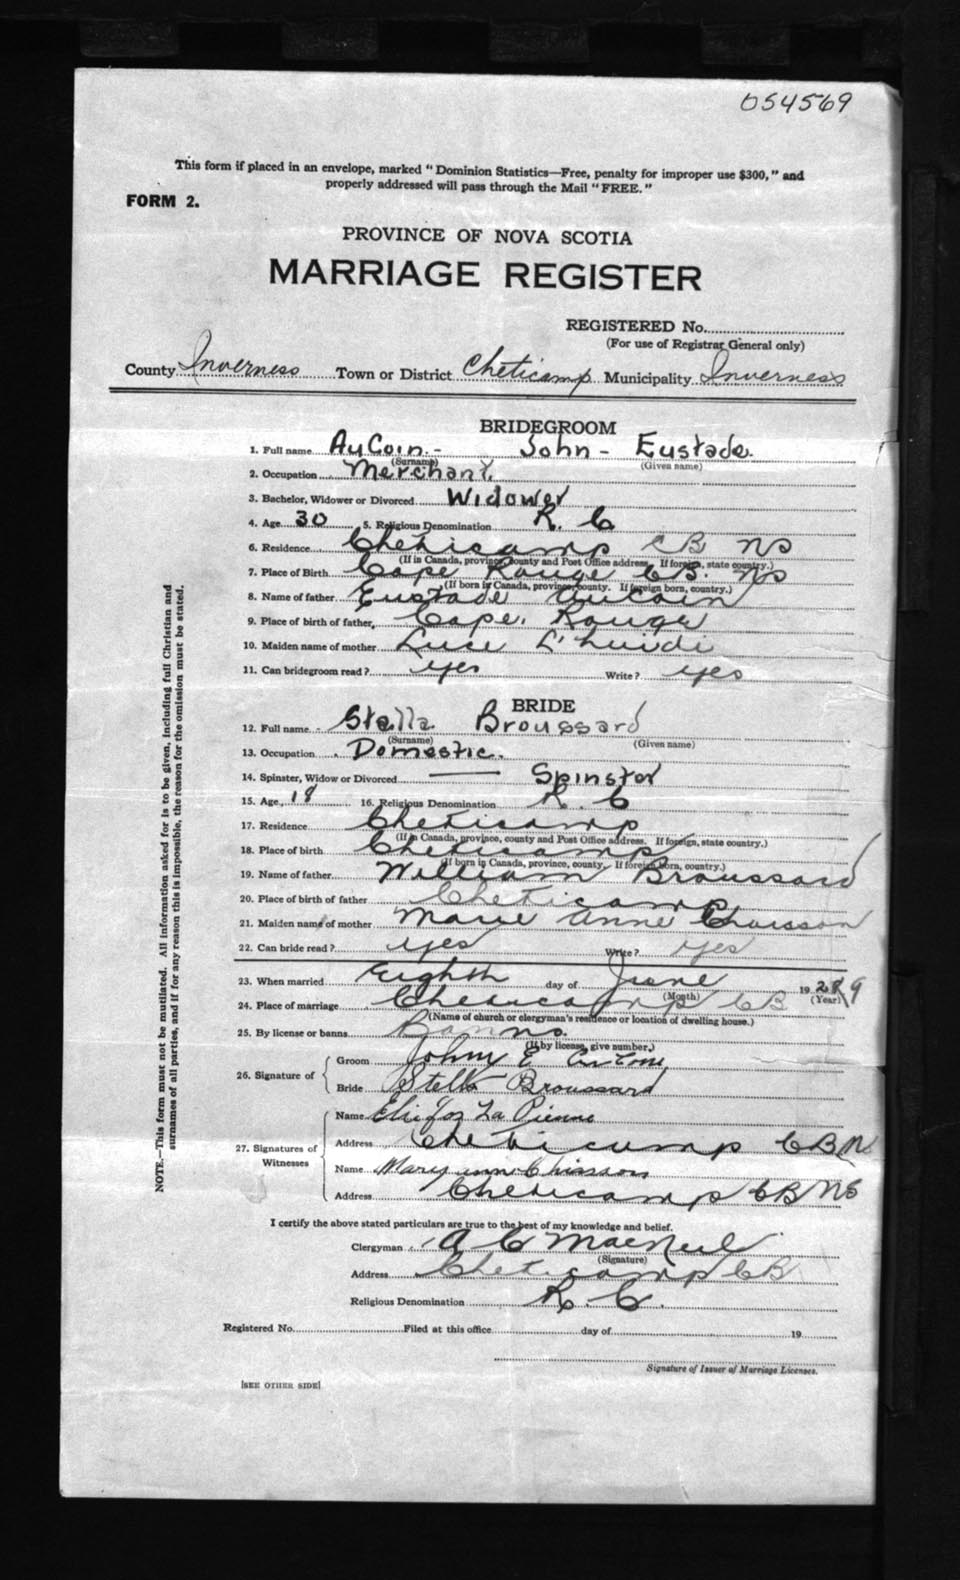 054569
This form if placed in an envelope, marked "Dominion Statistics—Free, penalty for improper use $300," and
properly addressed will pass through the Mail "FREE."
FORM 2.
PROVINCE OF NOVA SCOTIA
MARRIAGE REGISTER
REGISTERED No.
(For use of Registrar General only)
County Inverness Town or District Cheticamp Municipality Inverness
BRIDEGROOM
1. Full name AuCoin - John - Eustade
(Surname) (Given name)
2. Occupation Merchant
3. Bachelor, Widower or Divorced Widower
4. Age 30 5. Religious Denomination R. C
6. Residence Cheticamp CB NS
(If in Canada, province, county and Post Office address. If foreign, state country.)
7. Place of Birth Cape Rouge CB. NS
(If born in Canada, province, county. If foreign born, country.)
8. Name of father Eustade Aucoin
9. Place of birth of father, Cape Rouge
10. Maiden name of mother Luce
11. Can bridegroom read? yes Write? yes
BRIDE
12. Full name Stella Broussard
(Surname) (Given name)
13. Occupation Domestic.
14. Spinster, Widow or Divorced — Spinster
15. Age, 18 16. Religious Denomination R. C
17. Residence Cheticamp
(If in Canada, province, county and Post Office address. If foreign, state country.)
18. Place of birth Cheticamp
(If born in Canada, province, county. If foreign born, country.)
19. Name of father William Broussard
20. Place of birth of father Cheticamp
21. Maiden name of mother Marie Anne Chaisson
22. Can bride read? yes Write? yes
23. When married Eighth day of June 19 289
(Month) (Year)
24. Place of marriage Cheticamp CB
(Name of church or clergyman's residence or location of dwelling house.)
25. By license or banns Banns.
(If by license, give number.)
26. Signature of
Groom John E AuCoin
Bride Stella Broussard
27. Signatures of Witnesses
Name La Pierre
Address Cheticamp CB N
Name Mary Anne Chiasson
Address Cheticamp CB NS
I certify the above stated particulars are true to the best of my knowledge and belief.
Clergyman A C MacNeil
(Signature)
Address Cheticamp CB
Religious Denomination R. C.
Registered No. Filed at this office day of 19
Signature of Issuer of Marriage Licenses.
[SEE OTHER SIDE]
NOTE.—This form must not be mutilated. All information asked for is to be given, including full Christian and
surnames of all parties, and if for any reason this is impossible, the reason for the omission must be stated.